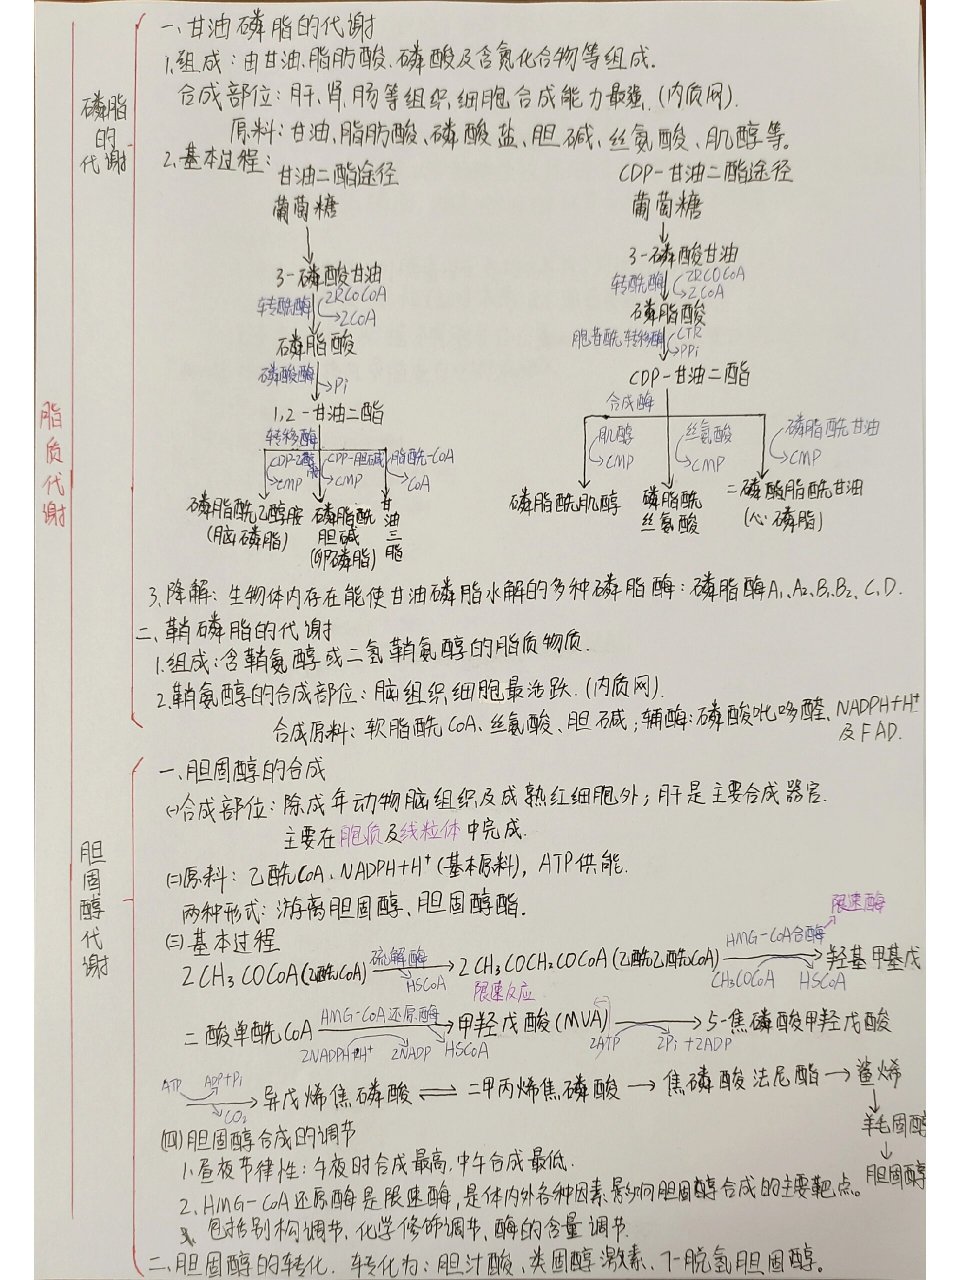 脂质代谢
磷脂的代谢
一、甘油磷脂的代谢
1.组成：由甘油、脂肪酸、磷酸及含氮化合物等组成.
合成部位：肝、肾、肠等组织细胞合成能力最强.(内质网).
原料：甘油、脂肪酸、磷酸盐、胆碱、丝氨酸、肌醇等。
2.基本过程：
甘油二酯途径
葡萄糖
3-磷酸甘油
转酰酶 2RCOCoA
2CoA
磷脂酸
磷酸酶
Pi
1,2-甘油二酯
转移酶
CDP-乙醇胺 CDP-胆碱 脂酰-CoA
CMP CMP CoA
磷脂酰乙醇胺
(脑磷脂)
磷脂酰
胆碱
(卵磷脂)
甘油三酯
CDP-甘油二酯途径
葡萄糖
3-磷酸甘油
转酰酶 2RCOCoA
2CoA
磷脂酸
胞苷酰转移酶 CTR
PPi
CDP-甘油二酯
合成酶
肌醇 丝氨酸 磷脂酰甘油
CMP CMP CMP
磷脂酰肌醇
磷脂酰
丝氨酸
二磷酸脂酰甘油
(心磷脂)
3.降解：生物体内存在能使甘油磷脂水解的多种磷脂酶：磷脂酶A₁、A₂、B₁、B₂、C、D.
二、鞘磷脂的代谢
1.组成：含鞘氨醇或二氢鞘氨醇的脂质物质.
2.鞘氨醇的合成部位：脑组织细胞最活跃.(内质网).
合成原料：软脂酰CoA、丝氨酸、胆碱；辅酶：磷酸吡哆醛、NADPH+H⁺
及FAD.
胆固醇代谢
一、胆固醇的合成
(一)合成部位：除成年动物脑组织及成熟红细胞外；肝是主要合成器官.
主要在胞质及线粒体中完成.
(二)原料：乙酰CoA、NADPH+H⁺(基本原料)，ATP供能.
两种形式：游离胆固醇、胆固醇酯.
(三)基本过程
2CH₃COCoA(乙酰CoA) 硫解酶 HSCoA 2CH₃COCH₂COCoA(乙酰乙酰CoA) HMG-CoA合酶 限速酶 CH₃COCoA HSCoA 羟基甲基戊
二酸单酰CoA HMG-CoA还原酶 2NADPH+H⁺ 2NADP HSCoA 限速反应 甲羟戊酸(MVA) 2ATP 2Pi+2ADP 5-焦磷酸甲羟戊酸
ATP ADP+Pi CO₂ 异戊烯焦磷酸 ⇌ 二甲丙烯焦磷酸 → 焦磷酸法尼酯 → 鲨烯
羊毛固醇
胆固醇
(四)胆固醇合成的调节
1.昼夜节律性：午夜时合成最高，中午合成最低.
2.HMG-CoA还原酶是限速酶，是体内外各种因素影响胆固醇合成的主要靶点。
3.包括别构调节、化学修饰调节、酶的含量调节.
二、胆固醇的转化. 转化为：胆汁酸、类固醇激素、7-脱氢胆固醇。